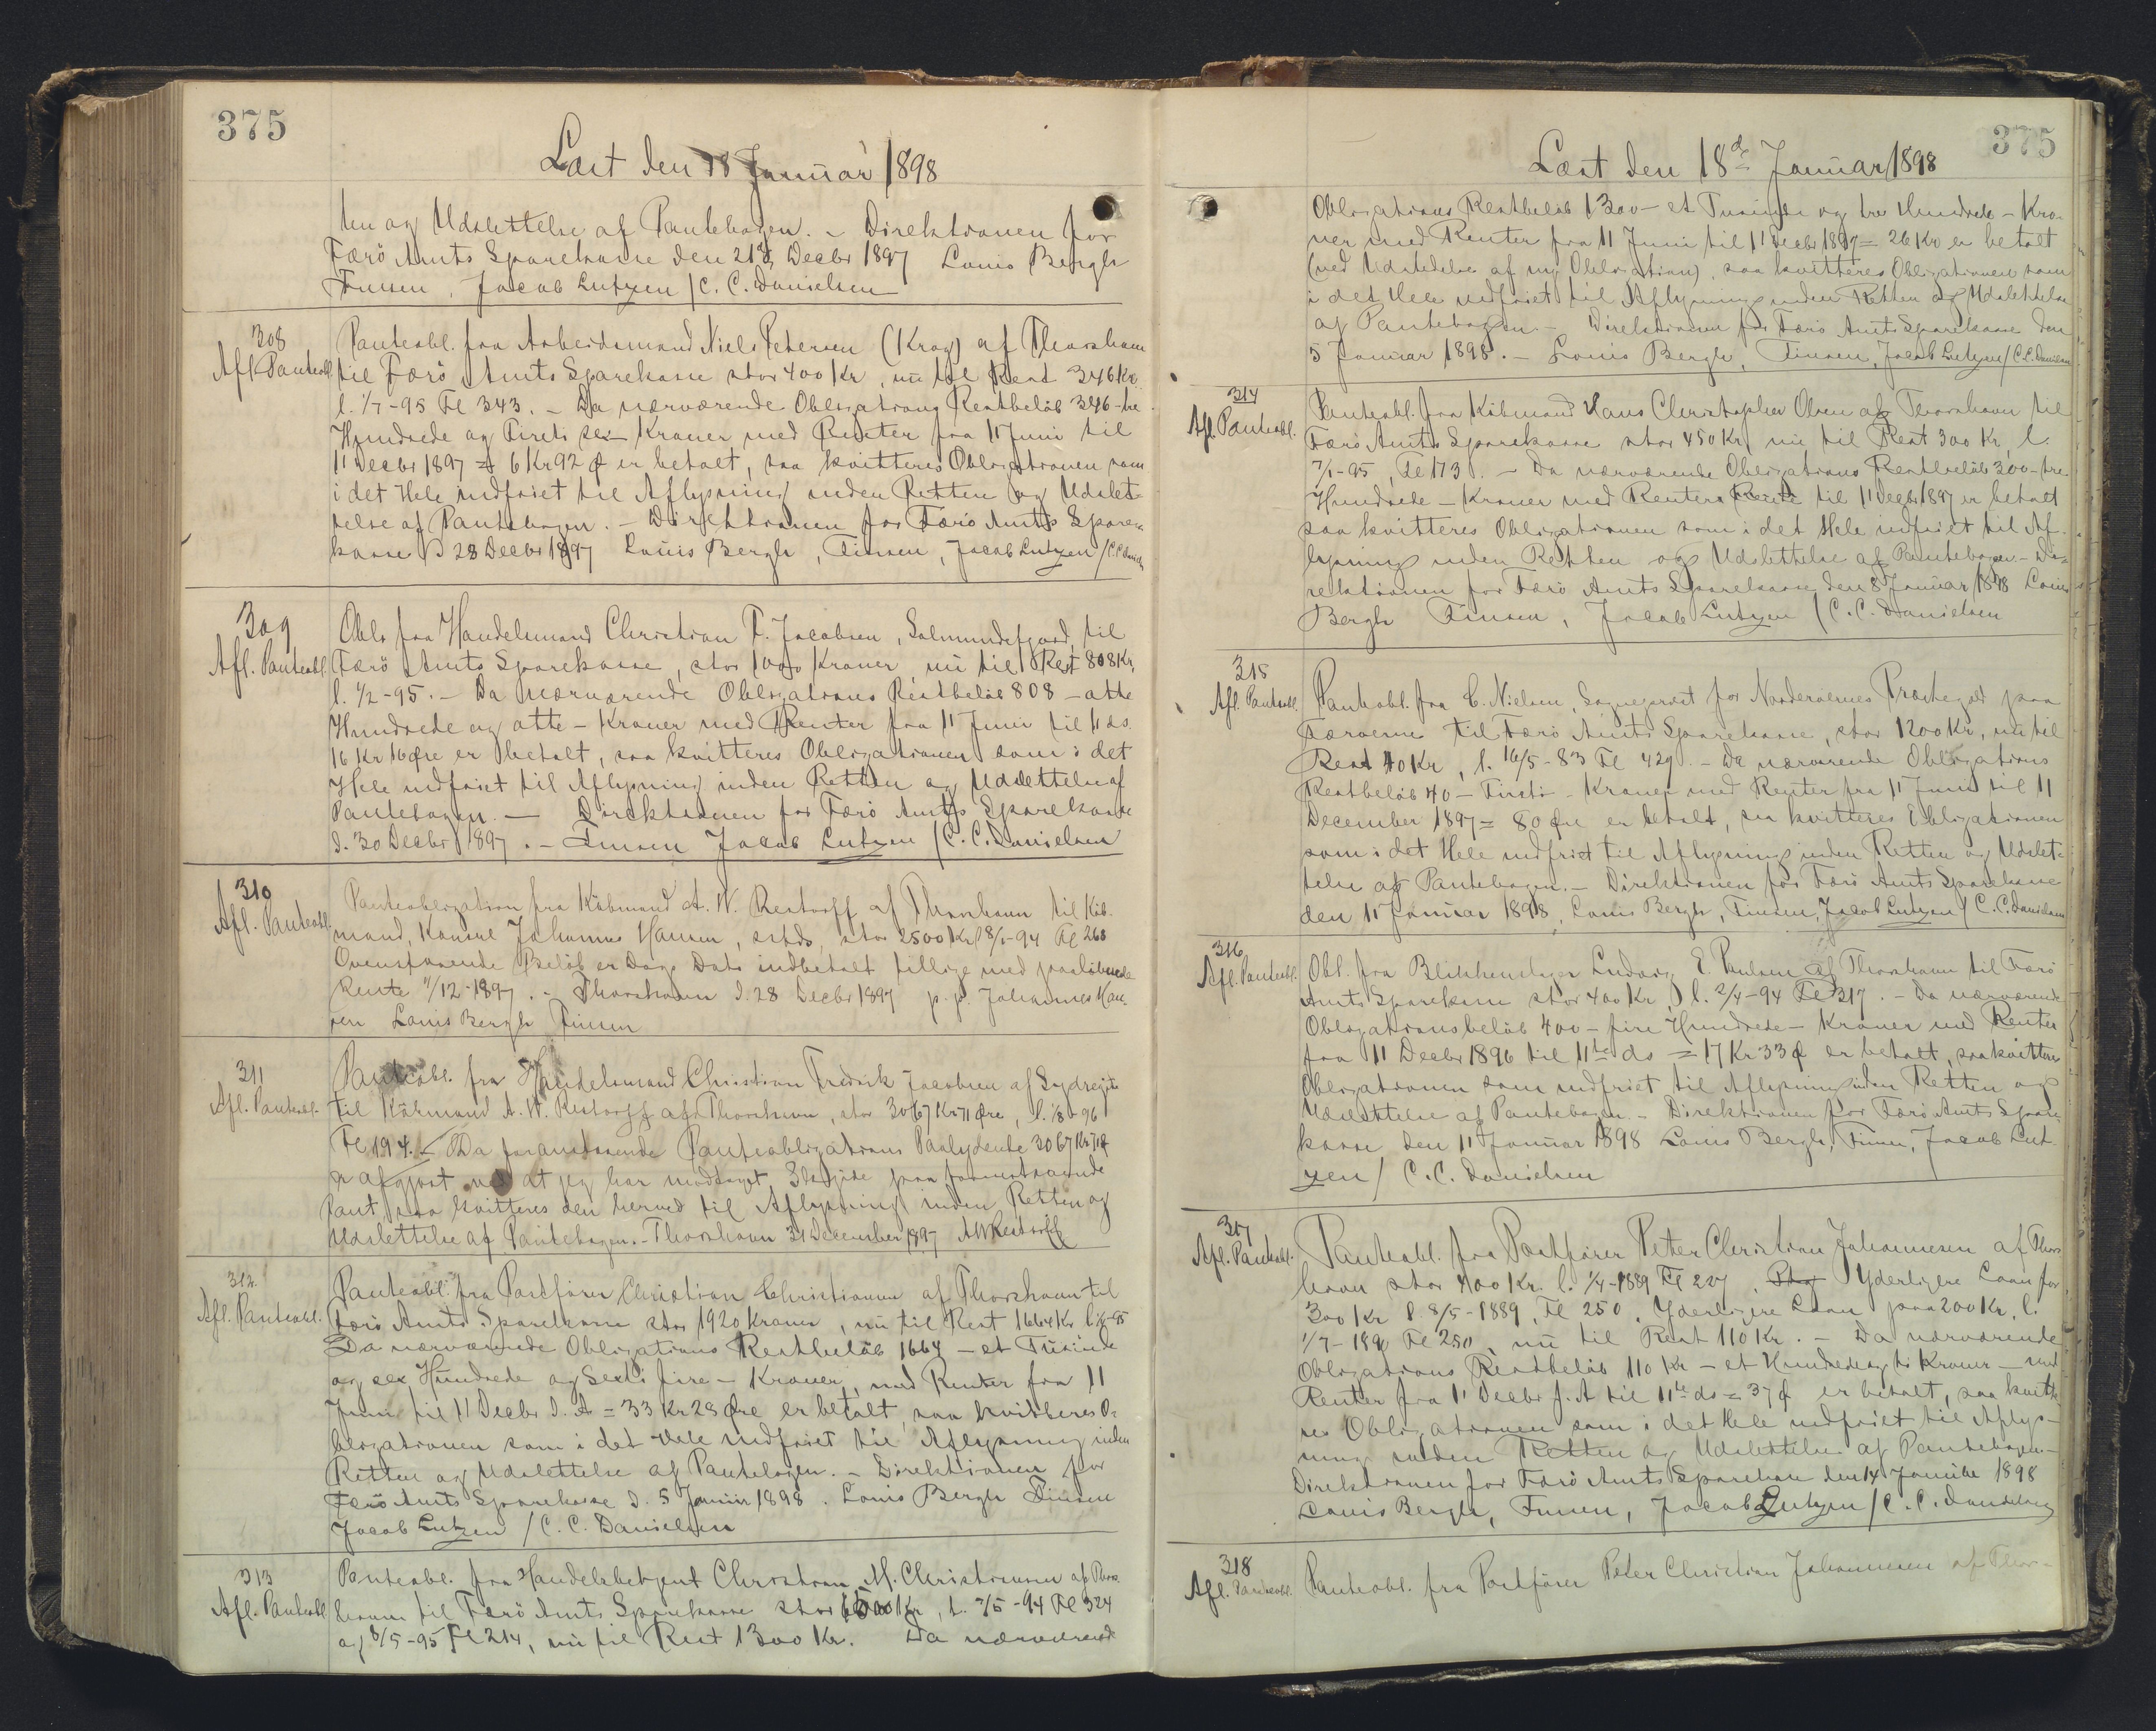 375
Læst den 18 Januar 1898
ten og Udslettelse af Pantebogen. - Direktionen for
Færö Amts Sparekasse den 21d Decbr 1897 Louis Bergh
Finsen, Jacob Lutzen / C. C. Danielsen
308
Afl. Panteobl.
Panteobl. fra Arbeidsmand Niels Petersen (Krog) af Thorshavn
til Færö Amts Sparekasse stor 400 Kr, nu til Rest 346 Kr.
l. 1/7-95 Fl 343. - Da nærværende Obligations Restbelöb 346 - tre
Hundrede og Fireti sex - Kroner med Renter fra 11 Juni til
11 Decbr 1897 = 6 Kr 92 Ø er betalt, saa kvitteres Obligationen som
i det Hele indfriet til Aflysning inden Retten og Udslet-
telse af Pantebogen. - Direktionen for Færö Amts Spare-
kasse D 28 Decbr 1897 Louis Bergh, Finsen, Jacob Lutzen / C.C. Daniels
309
Afl. Panteobl.
Obl. fra Handelsmand Christian F. Jacobsen, Salmundefjord, til
Færö Amts Sparekasse, stor 1000 Kroner, nu til Rest 808 Kr,
l. 1/2-95. - Da nærværende Obligations Restbelöb 808 - otte
Hundrede og otte - Kroner med Renter fra 11 Juni til 11 ds.
16 Kr 16 Øre er betalt, saa kvitteres Obligationen som i det
Hele indfriet til Aflysning inden Retten og Udslettelse af
Pantebogen. - Direktionen for Færö Amts Sparekasse
d. 30 Decbr 1897. - Finsen Jacob Lutzen / C. C. Danielsen
310
Afl. Panteobl.
Panteobligation fra Köbmand A. W. Restorff af Thorshavn til Köb-
mand, Konsul Johannes Hansen, stds, stor 2500 Kr l 8/5-94 Fl 268
Ovenstaaende Belöb er Dags Dato indbetalt tillige med paalöbende
Rente 11/12-1897. - Thorshavn d. 28 Decbr 1897 p. p. Johannes Han-
sen Louis Bergh Finsen
311
Afl. Panteobl.
Panteobl. fra Handelsmand Christian Fredrik Jacobsen af Sydregöte
til Köbmand A. W. Restorff af Thorshavn, stor 3067 Kr 71 Øre, l. 1/8-96
Fl 194. - Da foranstaaende Panteobligations Paalydende 3067 Kr 71 Ø
er afgjort ved at jeg har modtaget Skjöde paa foranstaaende
Pant, saa kvitteres den herved til Aflysning inden Retten og
Udslettelse af Pantebogen. - Thorshavn 31 December 1897 AWRestorff
312
Afl. Panteobl.
Panteobl. fra Postförer Christian Christiansen af Thorshavn til
Færö Amts Sparekasse stor 1920 Kroner, nu til Rest 1664 Kr l 1/5-95
Da nærværende Obligations Restbelöb 1664 - et Tusinde
og sex Hundrede og Sexti fire - Kroner, med Renter fra 11
Juni til 11 Decbr d. A = 33 Kr 28 Øre er betalt, saa kvitteres O-
bligationen som i det Hele indfriet til Aflysning inden
Retten og Udslettelse af Pantebogen. - Direktionen for
Færö Amts Sparekasse d. 5 Januar 1898. Louis Bergh Finsen
Jacob Lutzen / C. C. Danielsen
313
Afl. Panteobl
Panteobl. fra Handelsbetjent Christian M. Christiansen af Thors-
havn til Færö Amts Sparekasse stor 1500 Kr, l. 7/5-94 Fl 324
og 8/5-95 Fl 214, nu til Rest 1300 Kr. Da nærværende
375
Læst den 18d Januar 1898
Obligations Restbelöb 1300 - et Tusinde og tre Hundrede - Kro-
ner med Renter fra 11 Juni til 11 Decbr 1897 = 26 Kr er betalt
(ved Udstedelse af ny Obligation), saa kvitteres Obligationen som
i det Hele indfriet til Aflysning inden Retten og Udslettelse
af Pantebogen. - Direktionen for Færö Amts Sparekasse den
5 Januar 1898. - Louis Bergh, Finsen, Jacob Lutzen / C.C. Danielsen
314
Afl. Panteobl.
Panteobl. fra Köbmand Hans Christopher Olsen af Thorshavn til
Færö Amts Sparekasse stor 450 Kr, nu til Rest 300 Kr, l.
7/1-95, Fl 173. - Da nærværende Obligations Restbelöb 300 - tre
Hundrede - Kroner med Renter til 11 Decbr 1897 er betalt
saa kvitteres Obligationen som i det Hele indfriet til Af-
lysning inden Retten og Udslettelse af Pantebogen - Di-
rektionen for Færö Amts Sparekasse den 8 Januar 1898 Louis
Bergh Finsen, Jacob Lutzen / C. C. Danielsen
315
Afl. Panteobl.
Panteobl. fra C. Nielsen, Sognepræst for Norderöernes Præstegjeld paa
Færöerne til Færö Amts Sparekasse, stor 1200 Kr, nu til
Rest 40 Kr, l. 16/5-83 Fl 429. - Da nærværende Obligations
Restbelöb 40 - Fireti - Kroner med Renter fra 11 Juni til 11
December 1897 = 80 Øre er betalt, saa kvitteres Obligationen
som i det Hele indfriet til Aflysning inden Retten og Udslet-
telse af Pantebogen. - Direktionen for Færö Amts Sparekasse
den 11 Januar 1898, Louis Bergh, Finsen, Jacob Lutzen / C. C. Danielsen
316
Afl. Panteobl.
Obl. fra Blikkenslager Ludvig E. Poulsen af Thorshavn til Færö
Amts Sparekasse stor 400 Kr, l. 2/4-94 Fl 317. - Da nærværende
Obligationsbelöb 400 - fire Hundrede - Kroner med Renter
fra 11 Decbr 1896 til 11te ds = 17 Kr 33 Ø er betalt, saa kvitteres
Obligationen som indfriet til Aflysning inden Retten og
Udslettelse af Pantebogen. - Direktionen for Færö Amts Spare-
kasse den 11 Januar 1898 Louis Bergh, Finsen, Jacob Lut-
zen / C. C. Danielsen
317
Afl. Panteobl.
Panteobl. fra Postförer Peter Christian Johannesen af Thors-
havn stor 400 Kr. l. 1/4-1889 Fl 227, Yderligere Laan for
300 Kr l 8/5-1889, Fl 250. Yderligere Laan paa 200 Kr, l.
1/7-1890 Fl 250 nu til Rest 110 Kr. - Da nærværende
Obligations Restbelöb 110 Kr - et Hundrede og ti Kroner - med
Renter fra 11 Decbr f. A til 11te ds = 37 Ø er betalt, saa kvitte-
res Obligationen som i det Hele indfriet til Aflys-
ning inden Retten og Udslettelse af Pantebogen -
Direktionen for Færö Amts Sparekasse den 14 Januar 1898
Louis Bergh, Finsen, Jacob Lutzen / C. C. Danielsen
318
Afl. Panteobl.
Panteobl. fra Postförer Peter Christian Johannesen af Thors-